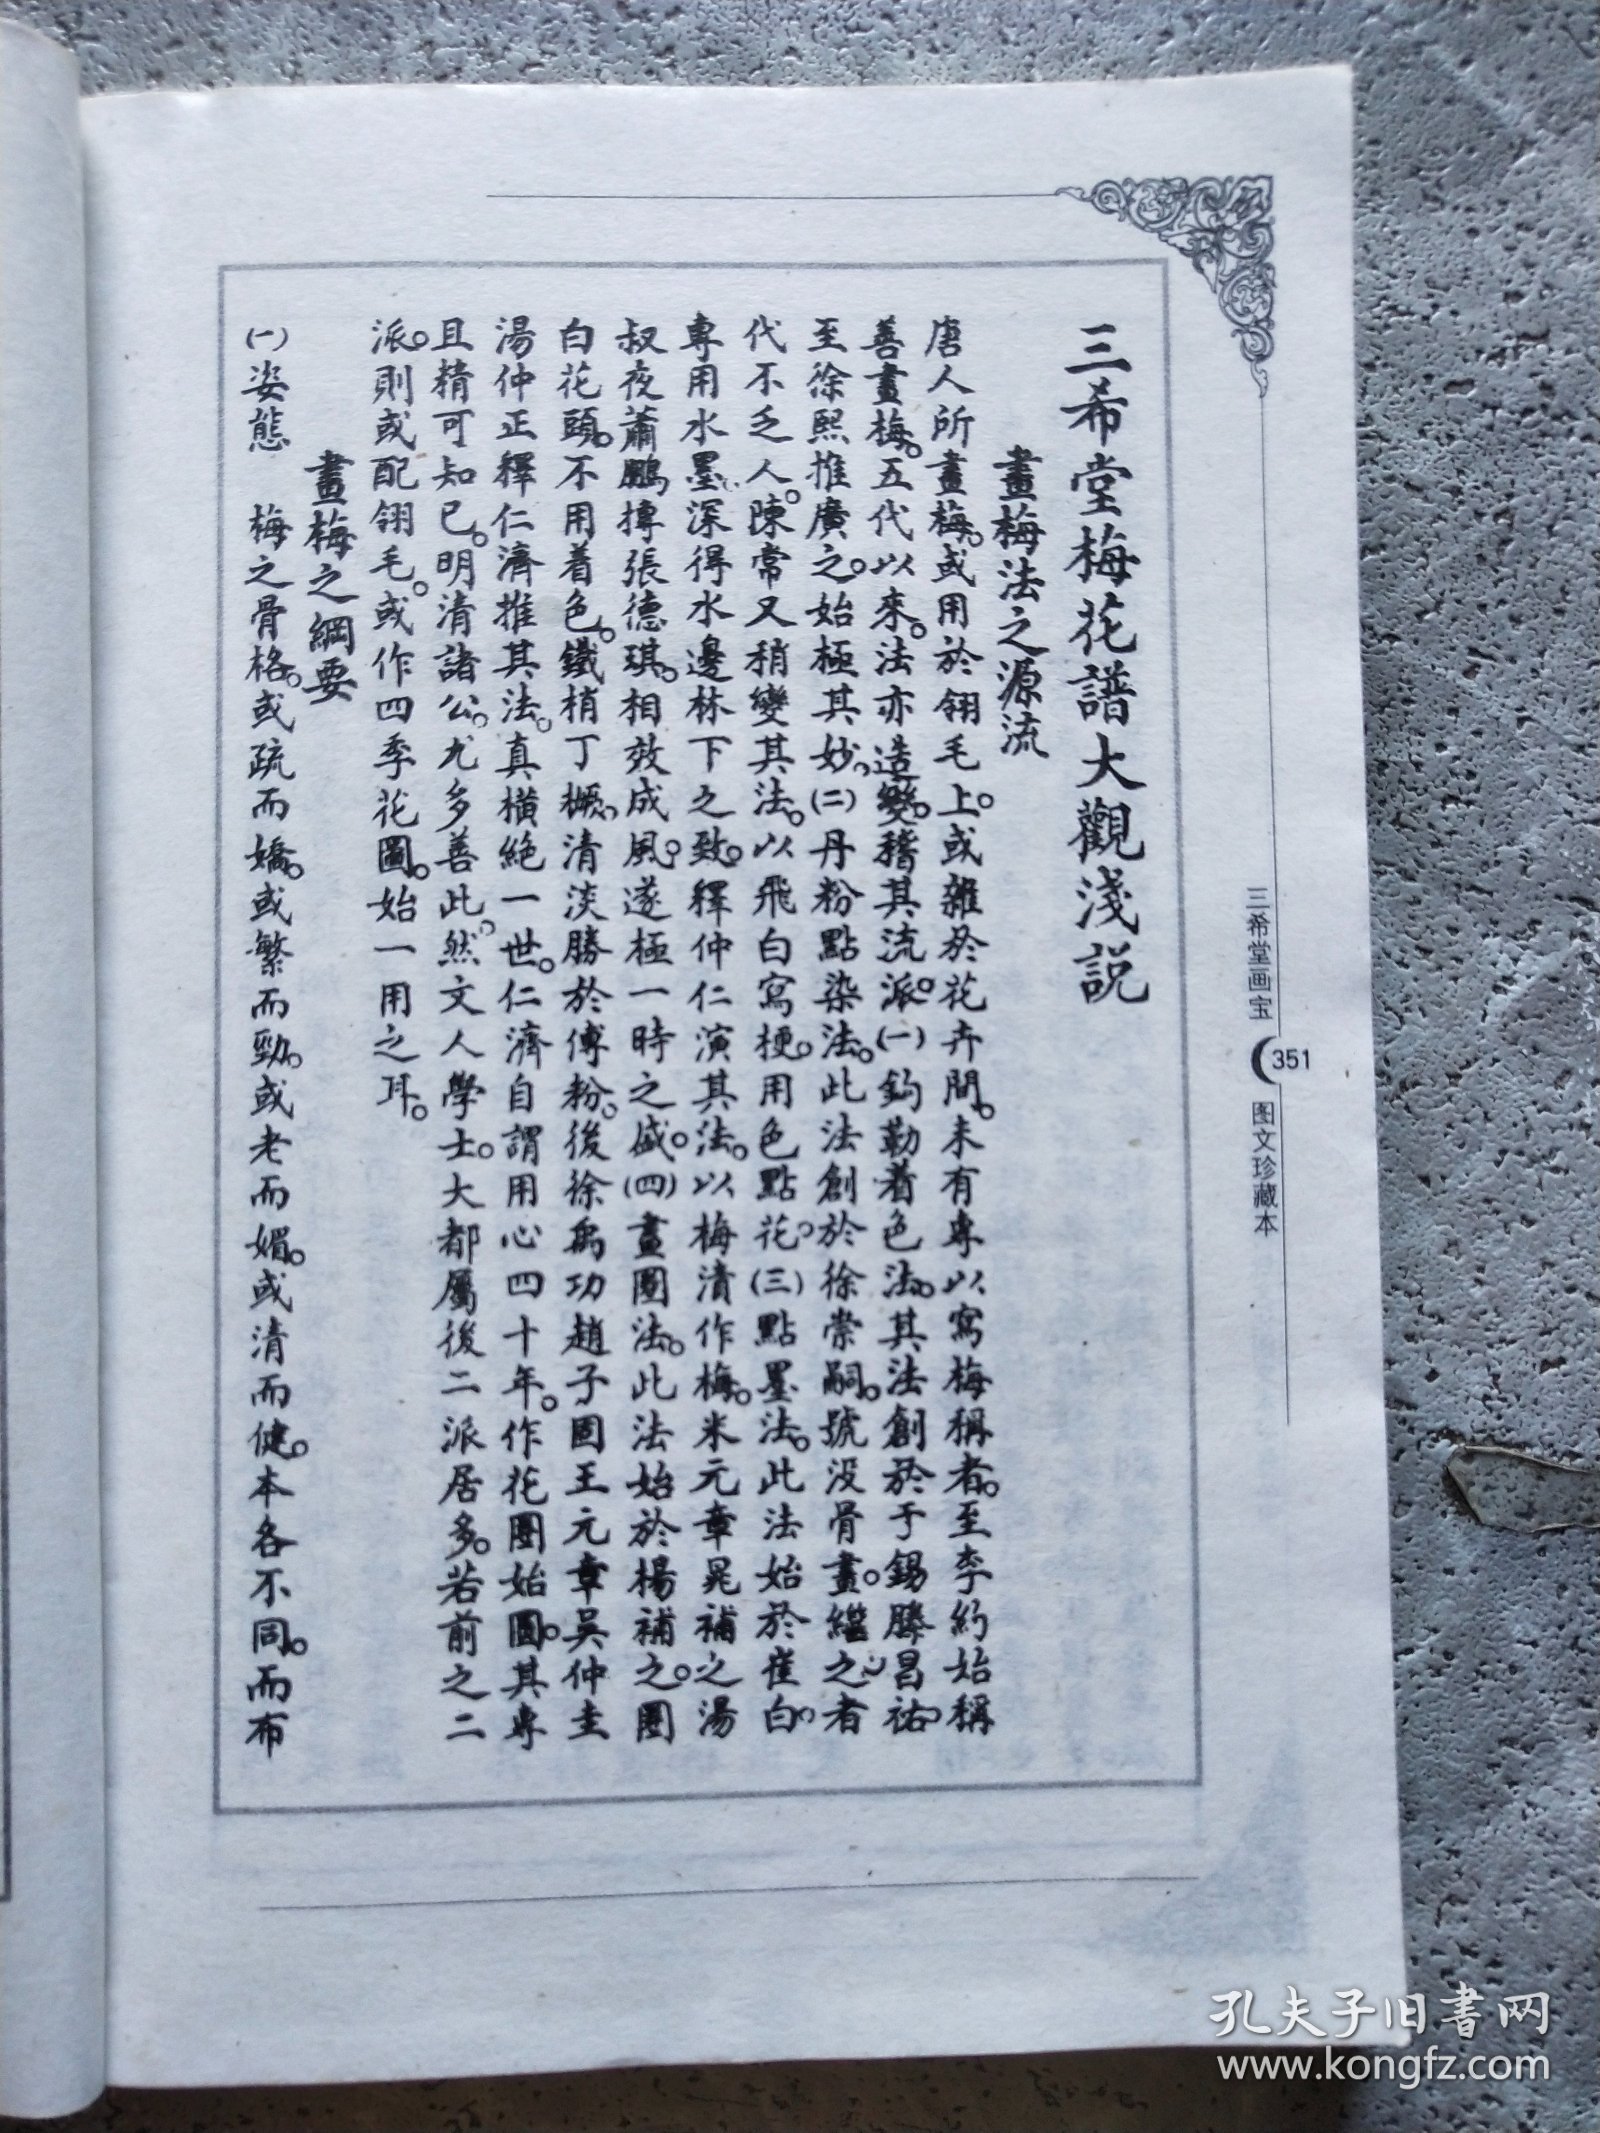 三希堂梅花譜大觀淺説
畫梅法之源流
唐人所畫梅。或用於翎毛上。或雜於花卉間。未有專以寫梅稱者。至李約始稱
善畫梅。五代以來。法亦造變。稽其流派。(一)鈎勒着色法。其法創於于錫滕昌祐、
至徐熙推廣之。始極其妙、(二)丹粉點染法。此法創於徐崇嗣。號没骨畫。繼之者
代不乏人。陳常又稍變其法。以飛白寫梗。用色點花、(三)點墨法。此法始於崔白、
專用水墨、深得水邊林下之致。釋仲仁演其法。以梅清作梅。米元章晁補之湯
叔夜蕭鵬摶張德琪。相效成風。遂極一時之盛。(四)畫圈法。此法始於楊補之。圈
白花頭。不用着色。鐵梢丁橛、清淡勝於傅粉。後徐禹功趙子固王元章吳仲圭
湯仲正釋仁濟推其法。真橫絶一世。仁濟自謂用心四十年。作花圈始圓。其專
且精可知已。明清諸公。尤多善此、然文人學士。大都屬後二派居多。若前之二
派。則或配翎毛。或作四季花圖。始一用之耳。
畫梅之綱要
(一)姿態 梅之骨格。或疏而嬌。或繁而勁。或老而媚。或清而健。本各不同。而布
三希堂画宝
351
图文珍藏本
孔夫子旧书网
www.kongfz.com